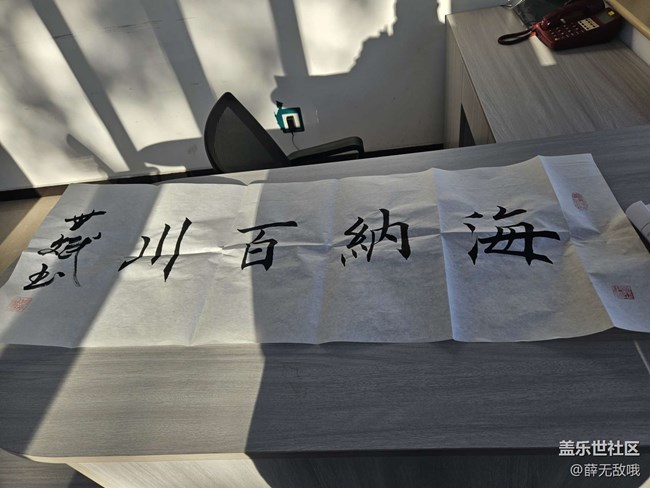 海納百川
盖乐世社区
@薛无敌哦